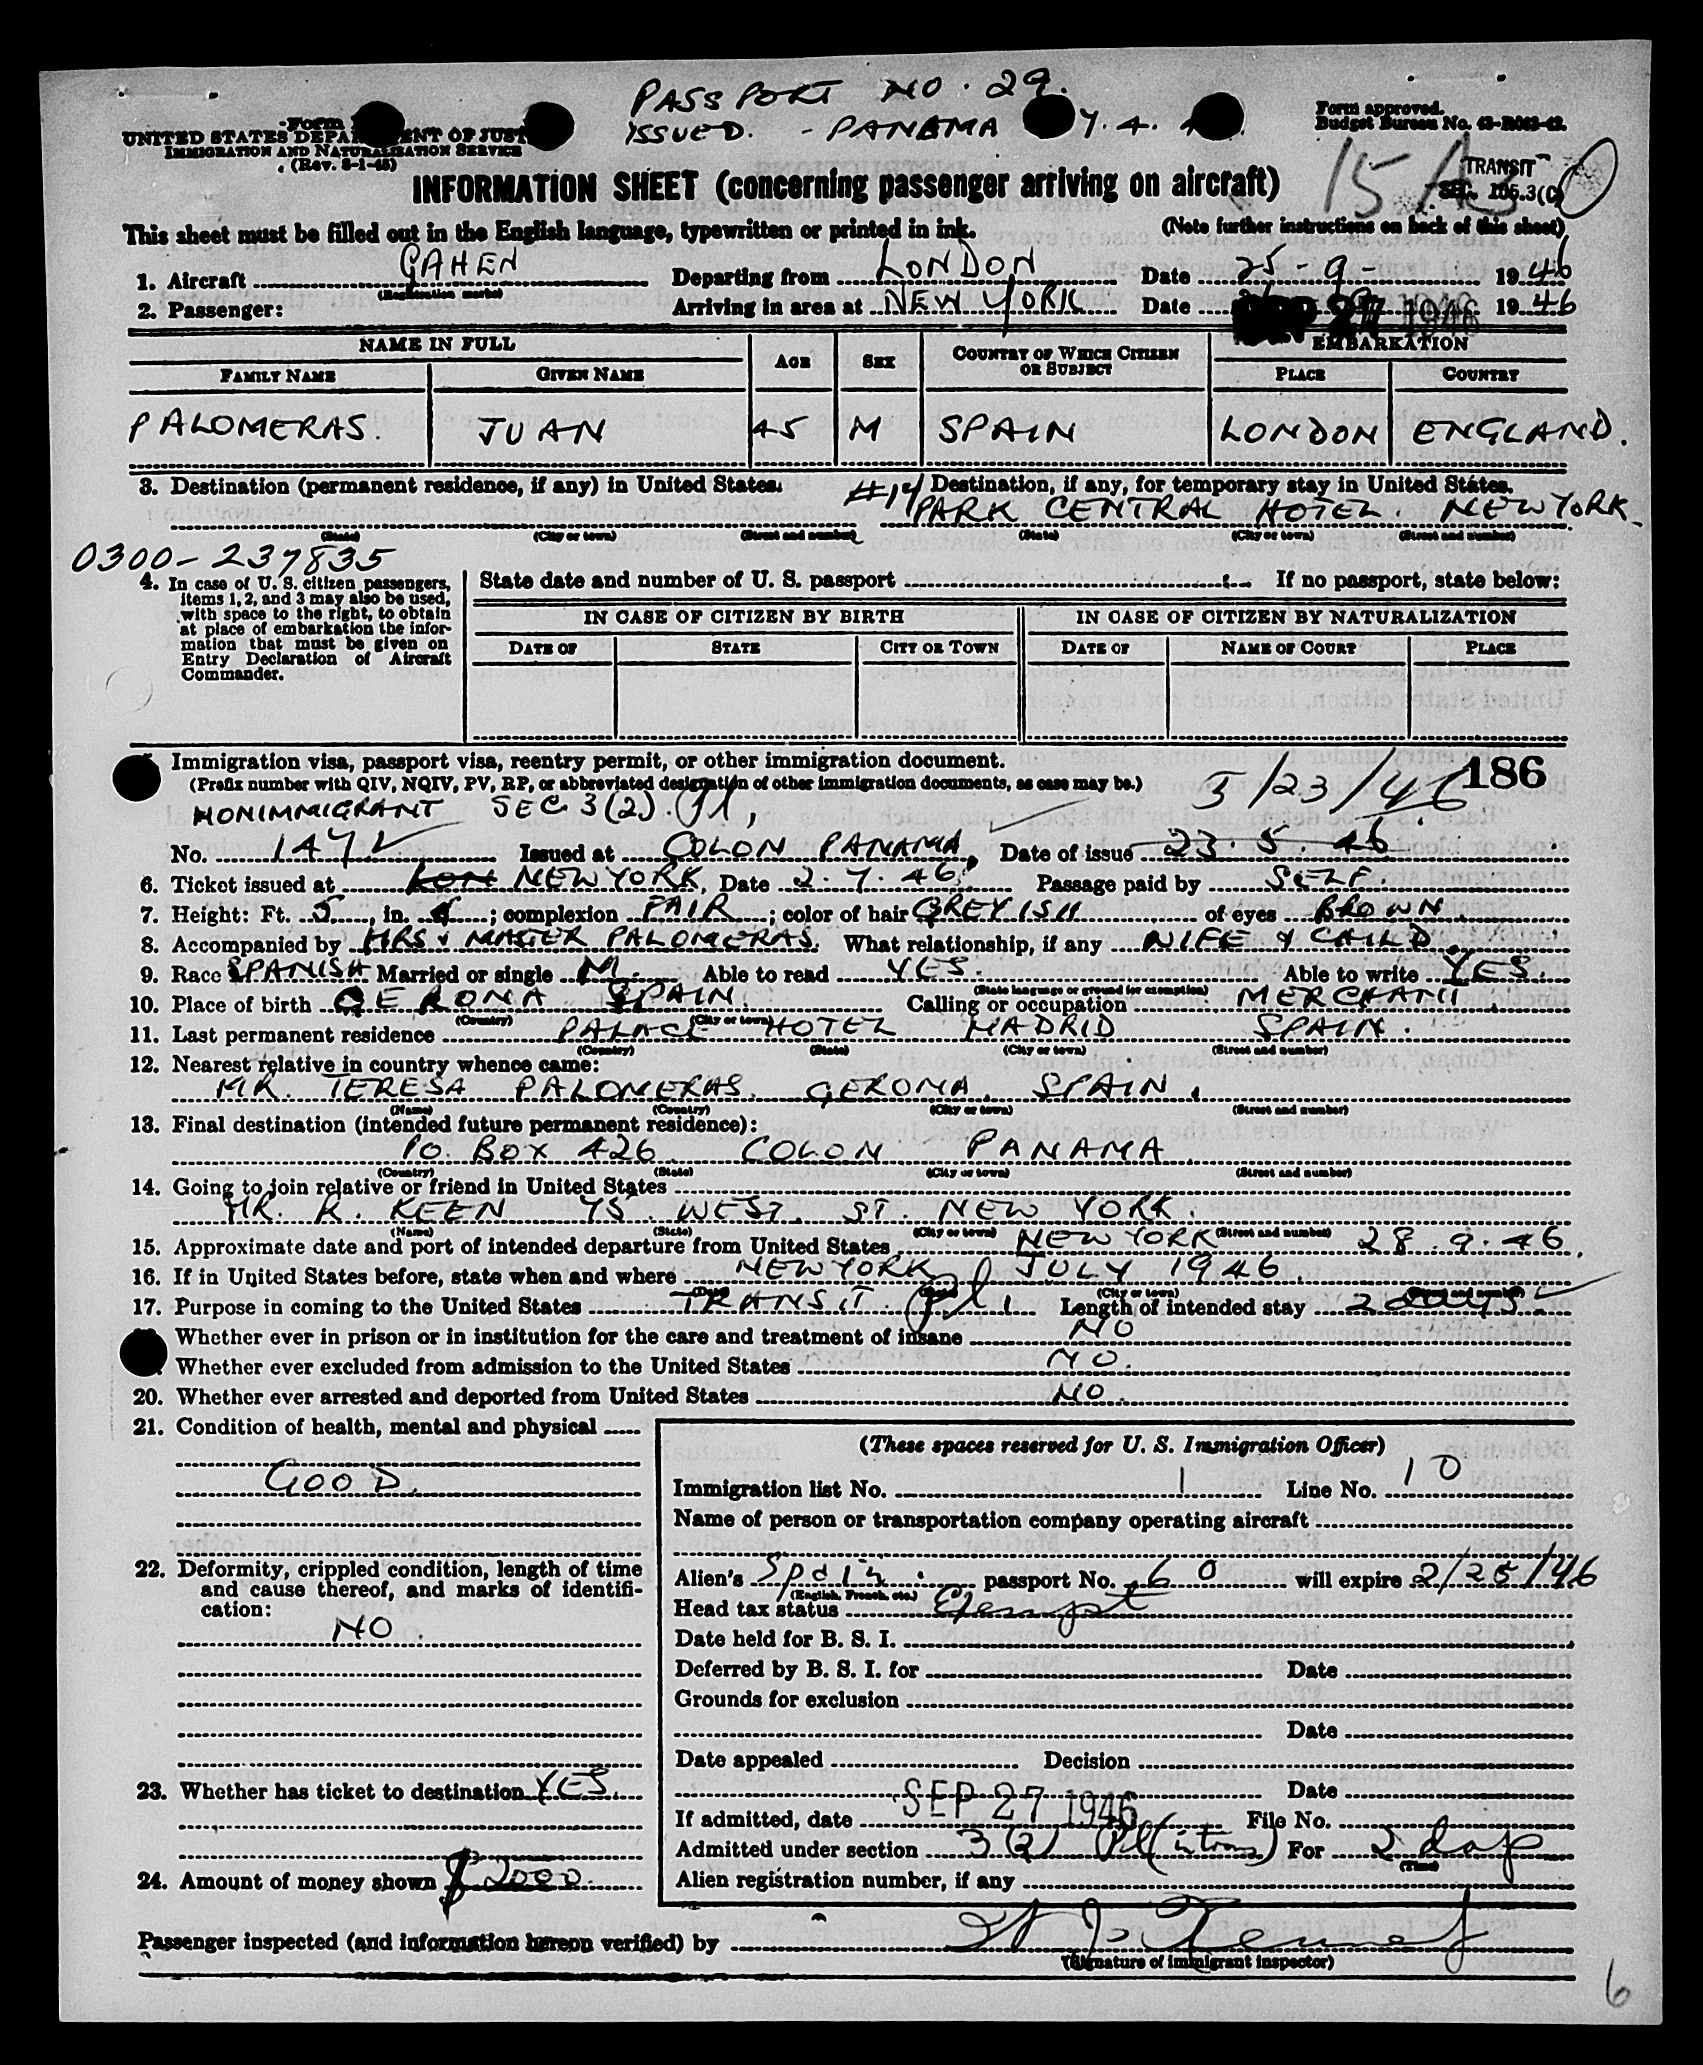 PASSPORT NO. 29.
ISSUED. - PANAMA 7. 4.
Form
UNITED STATES DEPARTMENT OF JUSTICE
IMMIGRATION AND NATURALIZATION SERVICE
(Rev. 8-1-45)
Form approved.
Budget Bureau No. 43-R083-42.
15 A3
TRANSIT
SEC. 105.3(C)
INFORMATION SHEET (concerning passenger arriving on aircraft)
This sheet must be filled out in the English language, typewritten or printed in ink. (Note further instructions on back of this sheet)
1. Aircraft GAHEN Departing from LONDON Date 25-9- 1946
(Registration marks)
2. Passenger: Arriving in area at NEW YORK Date SEP 27 1946 1946
NAME IN FULL AGE SEX COUNTRY OF WHICH CITIZEN OR SUBJECT EMBARKATION
FAMILY NAME GIVEN NAME PLACE COUNTRY
PALOMERAS. JUAN 45 M SPAIN LONDON ENGLAND.
3. Destination (permanent residence, if any) in United States. Destination, if any, for temporary stay in United States.
PARK CENTRAL HOTEL. NEW YORK.
(State) (City or town) (Street and number) (State) (City or town) (Street and number)
0300-237835
4. In case of U. S. citizen passengers, items 1, 2, and 3 may also be used, with space to the right, to obtain at place of embarkation the information that must be given on Entry Declaration of Aircraft Commander.
State date and number of U. S. passport If no passport, state below:
IN CASE OF CITIZEN BY BIRTH IN CASE OF CITIZEN BY NATURALIZATION
DATE OF STATE CITY OR TOWN DATE OF NAME OF COURT PLACE
Immigration visa, passport visa, reentry permit, or other immigration document.
(Prefix number with QIV, NQIV, PV, RP, or abbreviated designation of other immigration documents, as case may be.)
5/23/46 186
NONIMMIGRANT SEC 3(2).
No. 147 Issued at COLON PANAMA, Date of issue 23.5.46
6. Ticket issued at NEW YORK, Date 2.7.46. Passage paid by SELF.
7. Height: Ft. 5, in. ; complexion FAIR; color of hair GREYISH of eyes BROWN
8. Accompanied by MRS & MASTER PALOMERAS. What relationship, if any WIFE & CHILD
9. Race SPANISH Married or single M. Able to read YES. Able to write YES.
(State language or ground for exemption)
10. Place of birth GERONA SPAIN. Calling or occupation MERCHANT
(Country) (City or town)
11. Last permanent residence PALACE HOTEL MADRID SPAIN.
(Country) (State) (City or town) (Street and number)
12. Nearest relative in country whence came:
MR. TERESA PALOMERAS. GERONA. SPAIN.
(Name) (Country) (City or town) (Street and number)
13. Final destination (intended future permanent residence):
PO. BOX 426. COLON PANAMA
(Country) (State) (City or town) (Street and number)
14. Going to join relative or friend in United States
MR. R. KEEN 75 WEST. ST. NEW YORK.
(Name) (State) (City or town) (Street and number)
15. Approximate date and port of intended departure from United States NEW YORK 28.9.46.
16. If in United States before, state when and where NEW YORK JULY 1946.
17. Purpose in coming to the United States TRANSIT Length of intended stay 2 days.
Whether ever in prison or in institution for the care and treatment of insane NO
Whether ever excluded from admission to the United States NO.
20. Whether ever arrested and deported from United States NO.
21. Condition of health, mental and physical
GOOD.
22. Deformity, crippled condition, length of time and cause thereof, and marks of identification:
NO.
23. Whether has ticket to destination YES.
24. Amount of money shown $2000.
(These spaces reserved for U. S. Immigration Officer)
Immigration list No. 1 Line No. 10
Name of person or transportation company operating aircraft
Alien's Spain passport No. 60 will expire 2/25/46
(English, French, etc.)
Head tax status Exempt
Date held for B. S. I.
Deferred by B. S. I. for Date
Grounds for exclusion
Date
Date appealed Decision
Date
If admitted, date SEP 27 1946 File No.
Admitted under section 3(2) For 2 days
(Time)
Alien registration number, if any
Passenger inspected (and information hereon verified) by
(Signature of immigrant inspector)
6